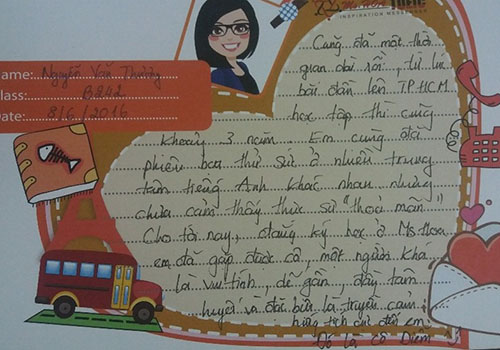 Ms Hoa TOEIC
INSPIRATION MESSENGER
Name: Nguyễn Văn Thương
Class: B242
Date: 8/6/2016
Cũng đã một thời
gian dài rồi, từ lúc
bắt đầu lên TP HCM
học tập thì cũng
khoảng 3 năm. Em cũng đã
phiêu bạt thử sức ở nhiều trung
tâm tiếng Anh khác nhau nhưng
chưa cảm thấy thực sự "thoải mãn"
Cho tới nay, đăng ký học ở Ms Hoa
em đã gặp được cô, một người khá
là vui tính, dễ gần, đầy tâm
huyết và đặc biệt là truyền cảm
hứng tích cực đến em
Đó là cô Diễm